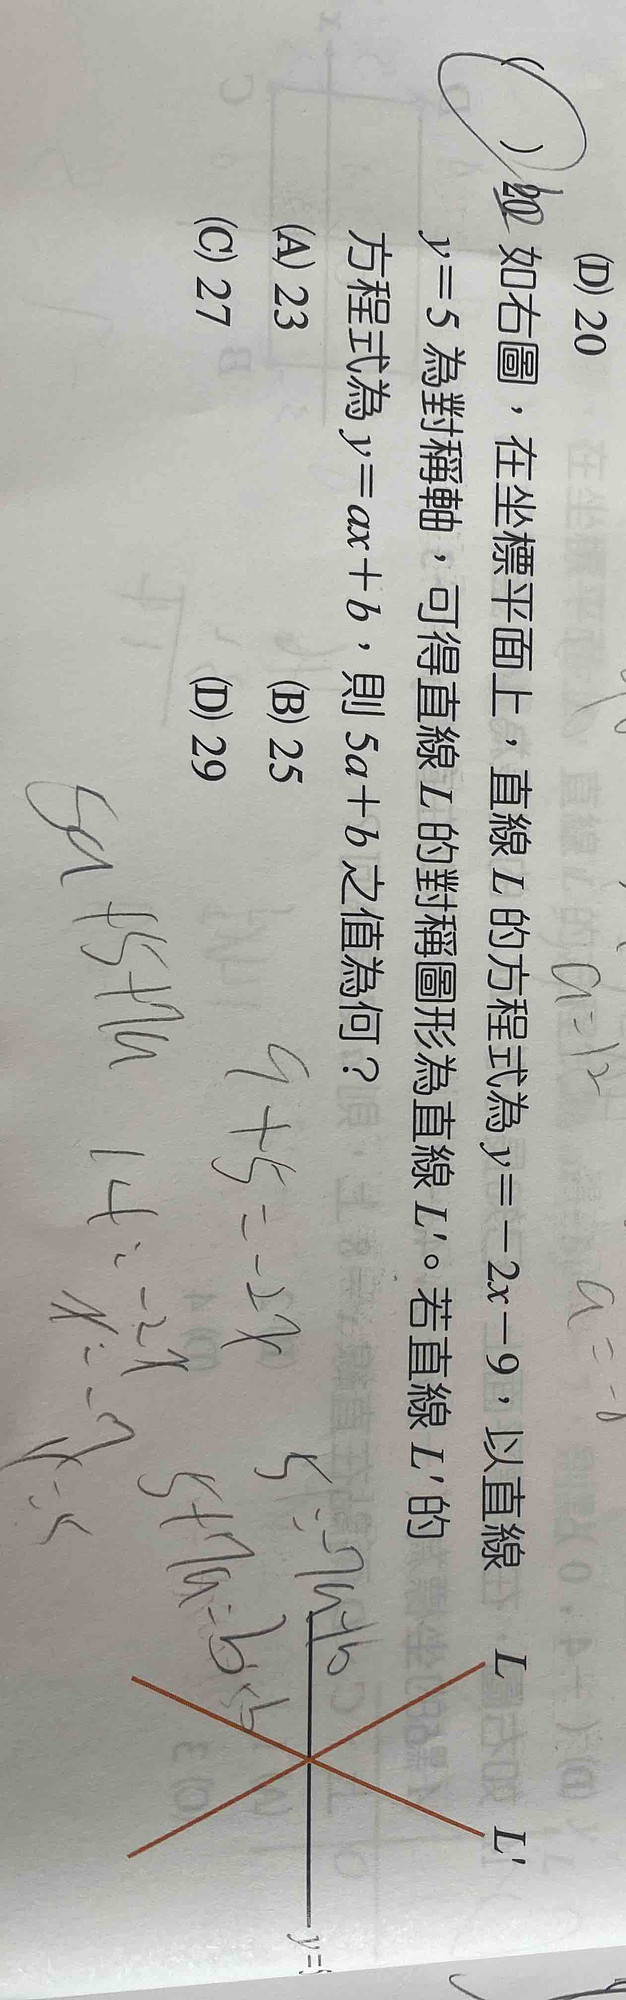 (D) 20
( ) 20 如右圖，在坐標平面上，直線 L 的方程式為 y=-2x-9，以直線
y=5 為對稱軸，可得直線 L 的對稱圖形為直線 L'。若直線 L' 的
方程式為 y=ax+b，則 5a+b 之值為何？
(A) 23 (B) 25
(C) 27 (D) 29
L L'
y=5
a=12
9+5=-2x
14=-2x
x=-7
5=-7a+b
5+7a=b
5a+5+7a